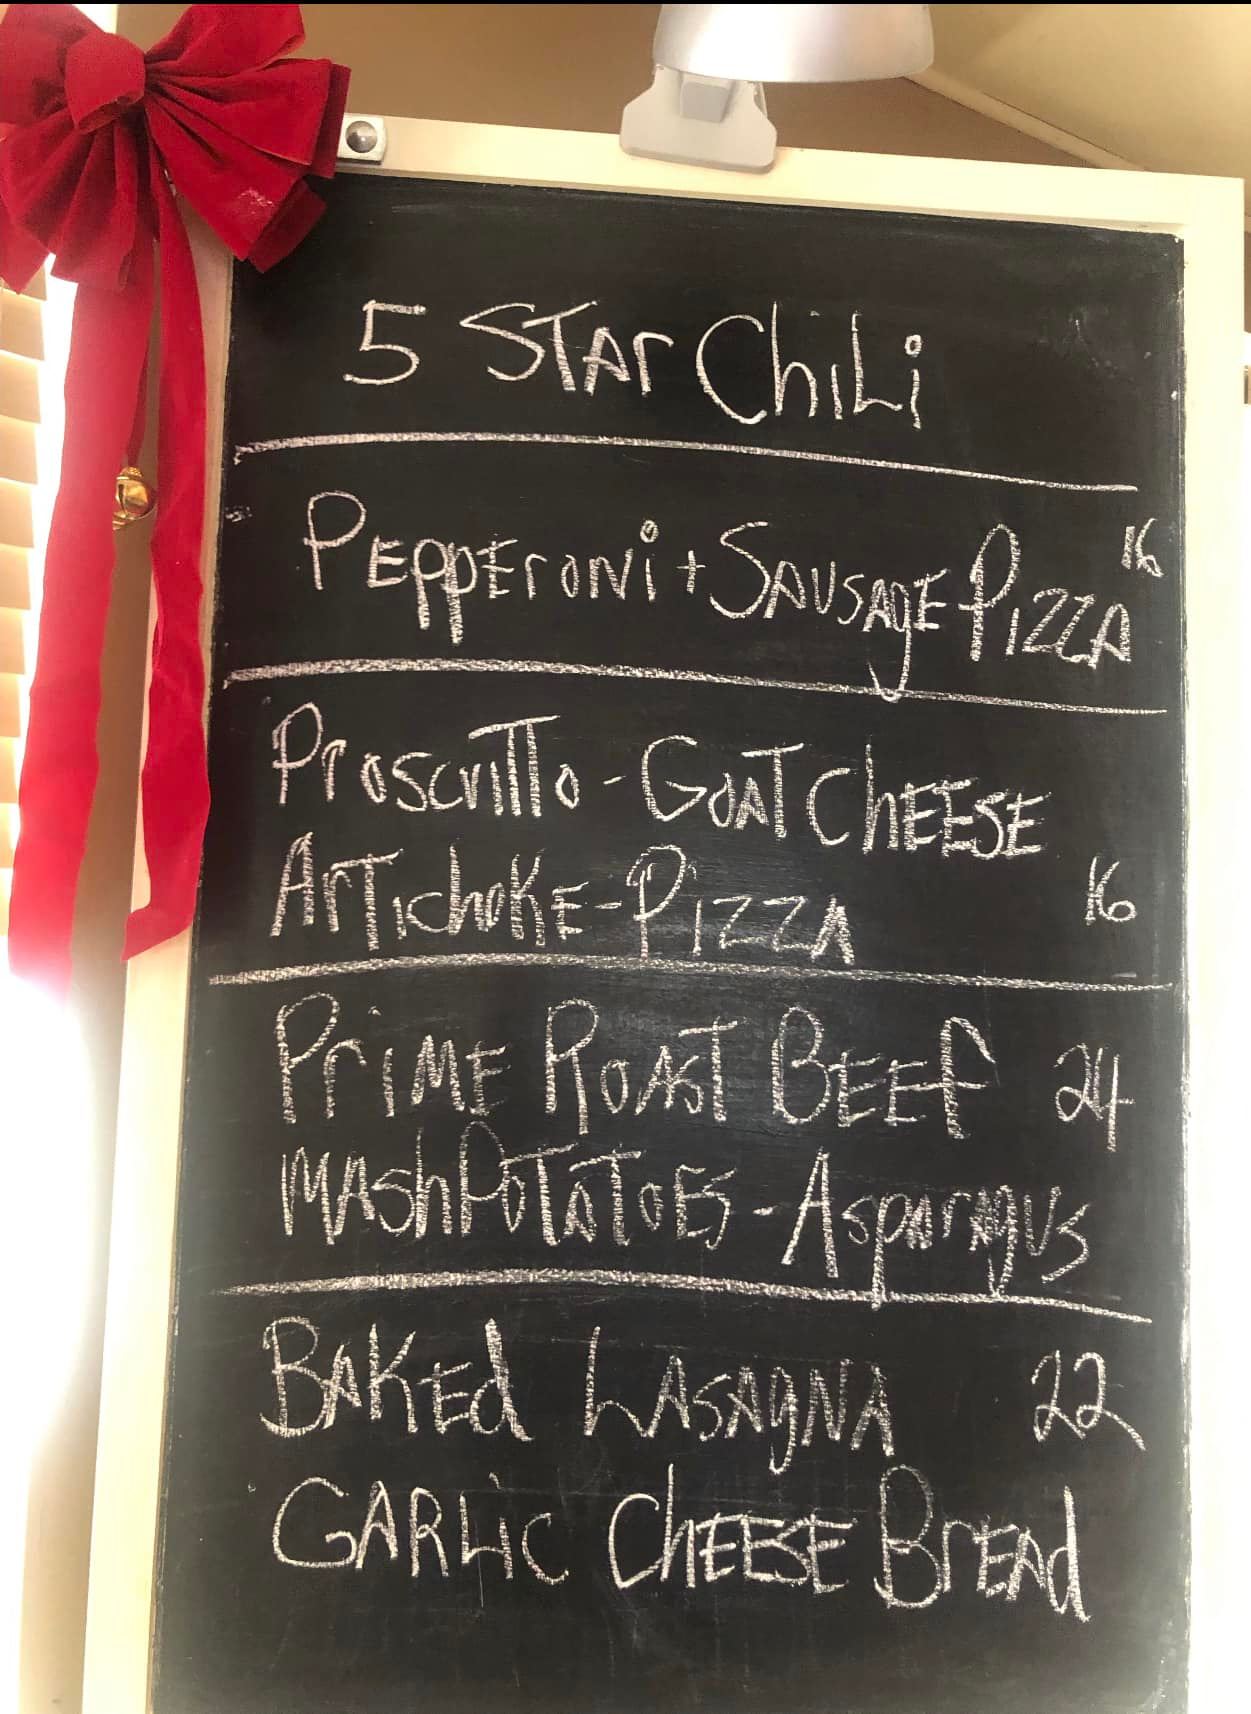 5 Star Chili
Pepperoni + Sausage Pizza 16
Proscuitto - Goat Cheese
Artichoke - Pizza 16
Prime Roast Beef 24
Mash Potatoes - Asparagus
Baked Lasagna 22
Garlic Cheese Bread